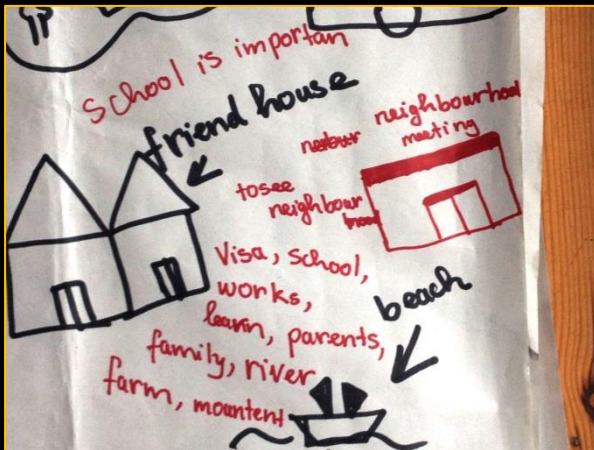 School is importan
friend house
neighbourhood
meeting
tosee
neighbour
Visa, school,
works,
learn, parents,
family, river
farm, mountent
beach